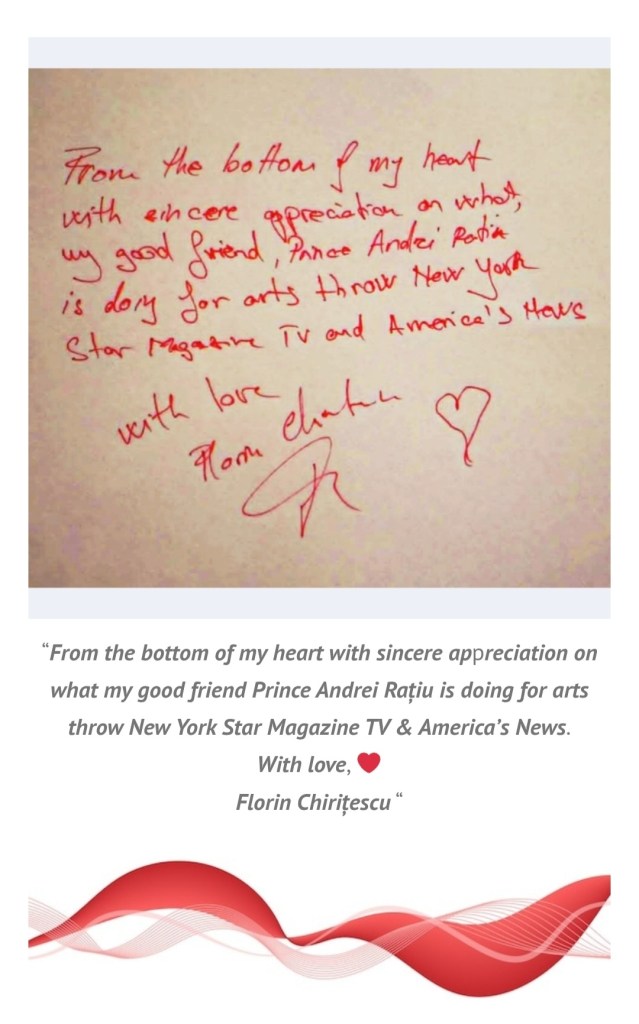 From the bottom of my heart
with sincere appreciation on what,
my good friend, Prince Andrei Ratiu
is doing for arts throw New York
Star Magazine TV and America's News
with love
Florin
“From the bottom of my heart with sincere appreciation on
what my good friend Prince Andrei Rațiu is doing for arts
throw New York Star Magazine TV & America’s News.
With love, ❤
Florin Chirițescu “